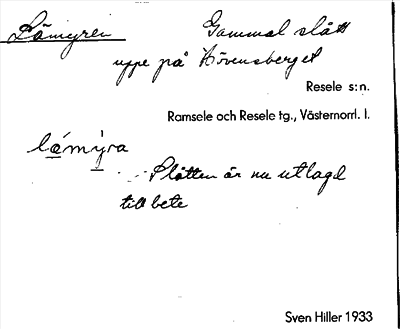 Lämyren Gammal slått
uppe på Bövensberget
Resele s:n.
Ramsele och Resele tg., Västernorrl. l.
lämýra
Slåtten är nu utlagd
till bete
Sven Hiller 1933